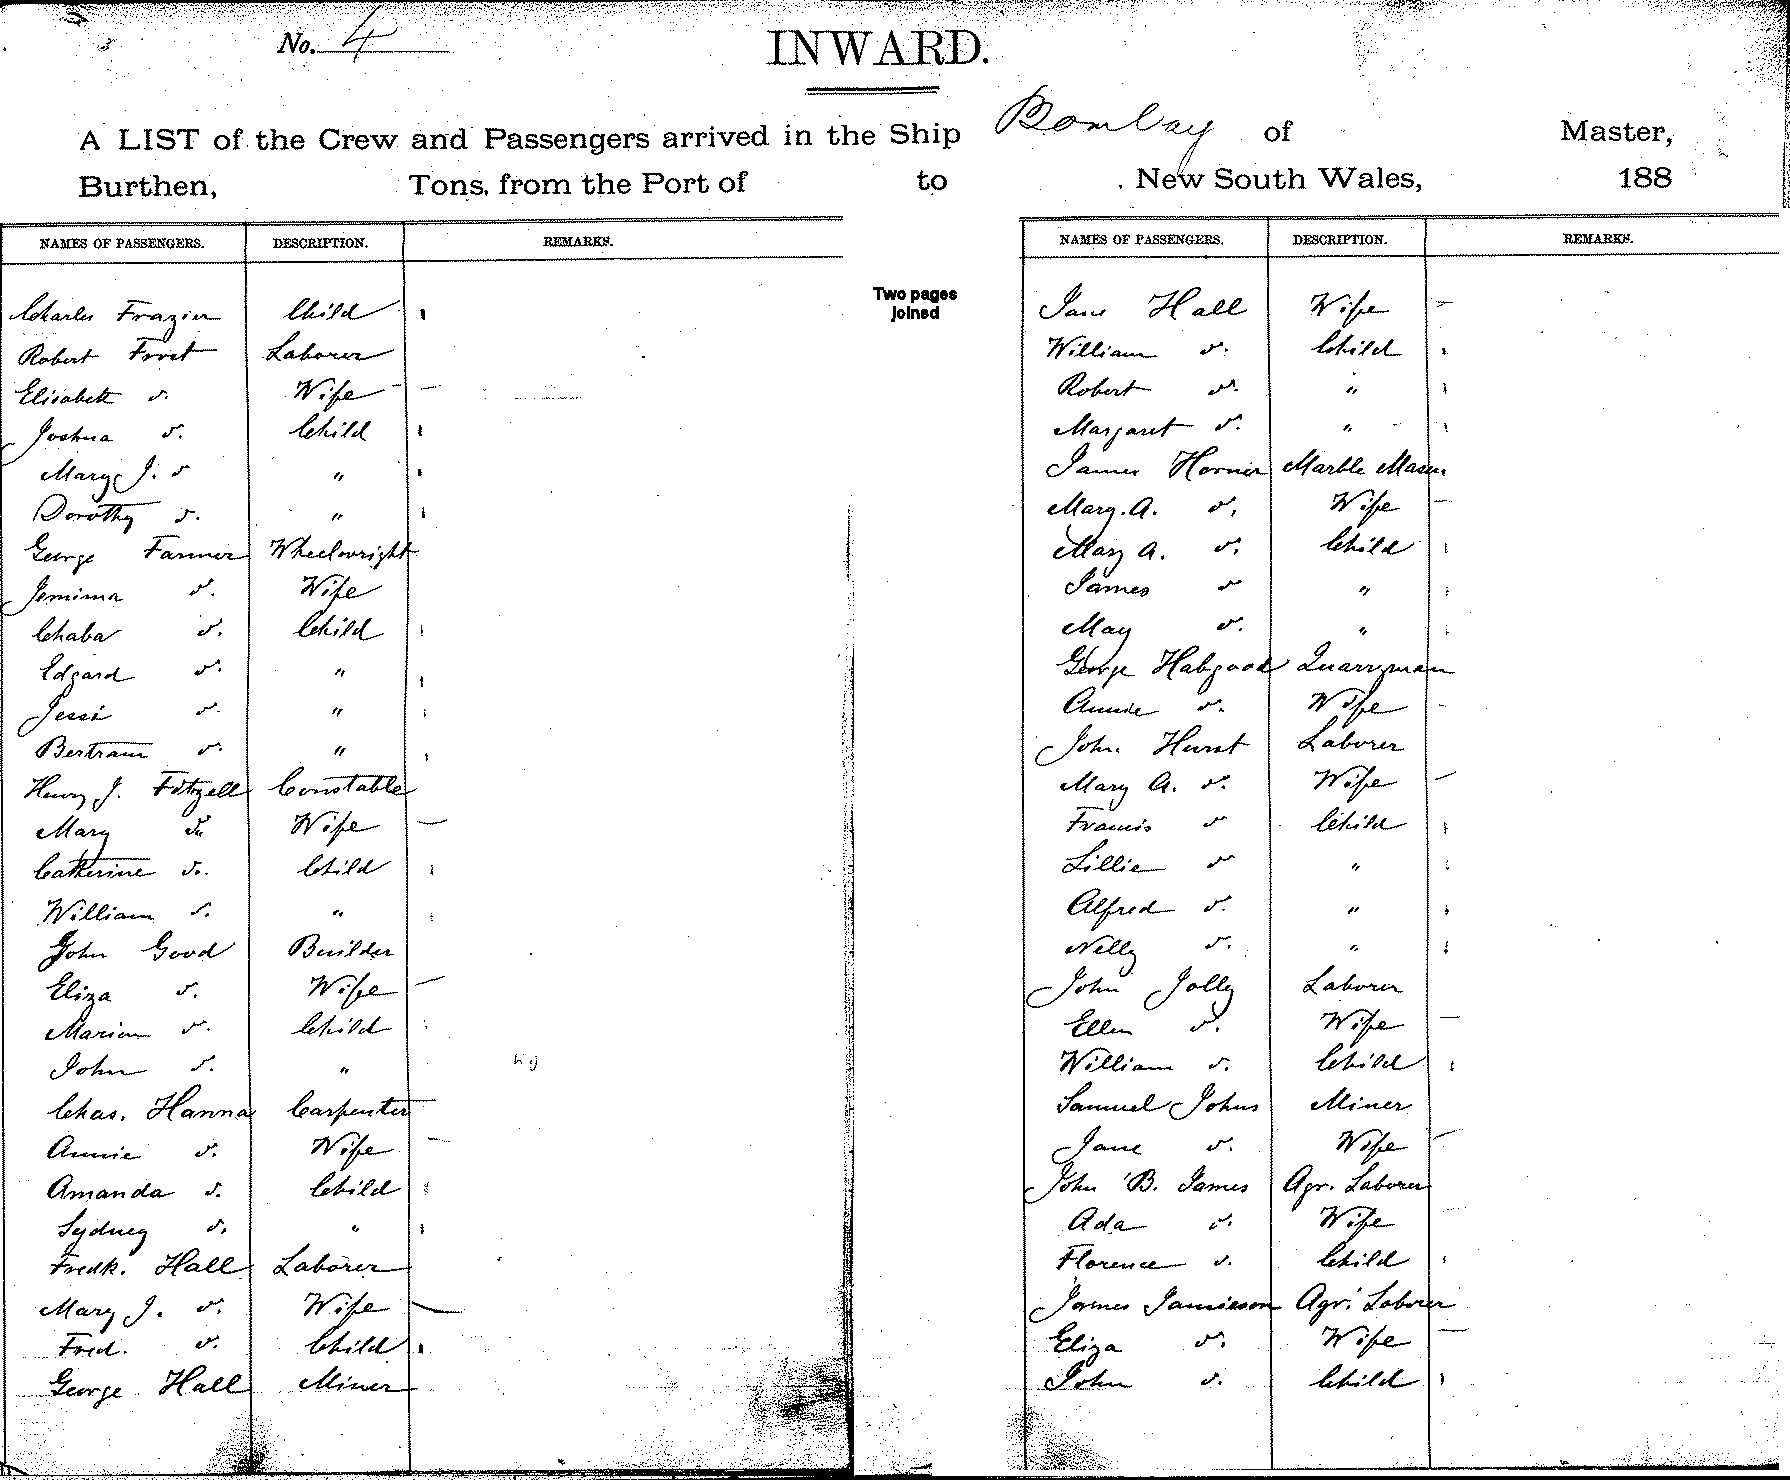 No. 4
INWARD.
A LIST of the Crew and Passengers arrived in the Ship Bombay of Master,
Burthen, Tons, from the Port of to New South Wales, 188
NAMES OF PASSENGERS. DESCRIPTION. REMARKS.
Charles Frazier Child
Robert Frost Laborer
Elisabeth Do. Wife
Joshua Do. Child
Mary J. Do "
Dorothy Do. "
George Farmer Wheelwright
Jemima Do. Wife
Do. Child
Edgard Do. "
Jessi Do. "
Bertram Do. "
Henry J. Fitzgell Constable
Mary Do Wife
Catherine Do. Child
William Do. "
John Good Builder
Eliza Do. Wife
Marion Do. Child
John Do. "
Chas. Hanna Carpenter
Annie Do. Wife
Amanda Do. Child
Sydney Do. "
Fredk. Hall Laborer
Mary J. Do. Wife
Fred. Do. Child
George Hall Miner
Two pages
joined
NAMES OF PASSENGERS. DESCRIPTION. REMARKS.
Jane Hall Wife
William Do. Child
Robert Do. "
Margaret Do. "
James Horner Marble Mason
Mary. A. Do. Wife
Mary A. Do. Child
James Do "
May Do. "
George Habgood Quarryman
Annie Do. Wife
John Hurst Laborer
Mary A. Do. Wife
Francis Do Child
Lillie Do "
Alfred Do. "
Nelly Do. "
John Jolly Laborer
Ellen Do. Wife
William Do. Child
Samuel Johns Miner
Jane Do. Wife
John B. James Agr. Laborer
Ada Do. Wife
Florence Do. Child
James Jamieson Agr. Laborer
Eliza Do. Wife
John Do. Child